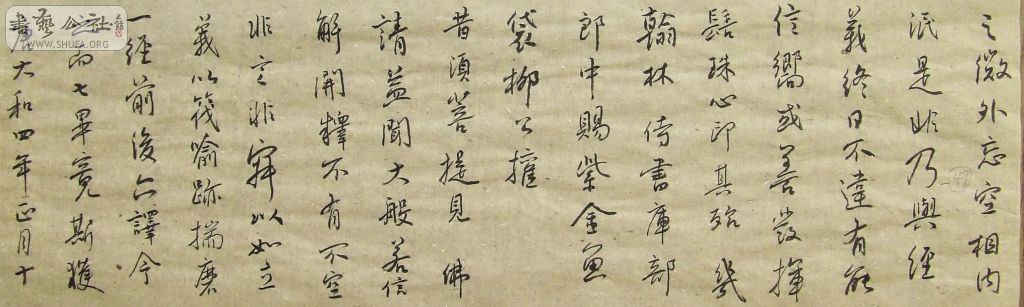 之微外忘空相内
泯是非乃與經
義終日不違有能
信嚮或善發揮
髻珠心印其殆幾
翰林侍書庫部
郎中賜紫金魚
袋柳公權
昔須菩提見佛
請益聞大般若信
解開釋不有不空
非言非寂以如立
義以筏喻跡揣磨
一經前後六譯今
七畢竟斯獲
大和四年正月十
書藝公社
WWW.SHUFA.ORG